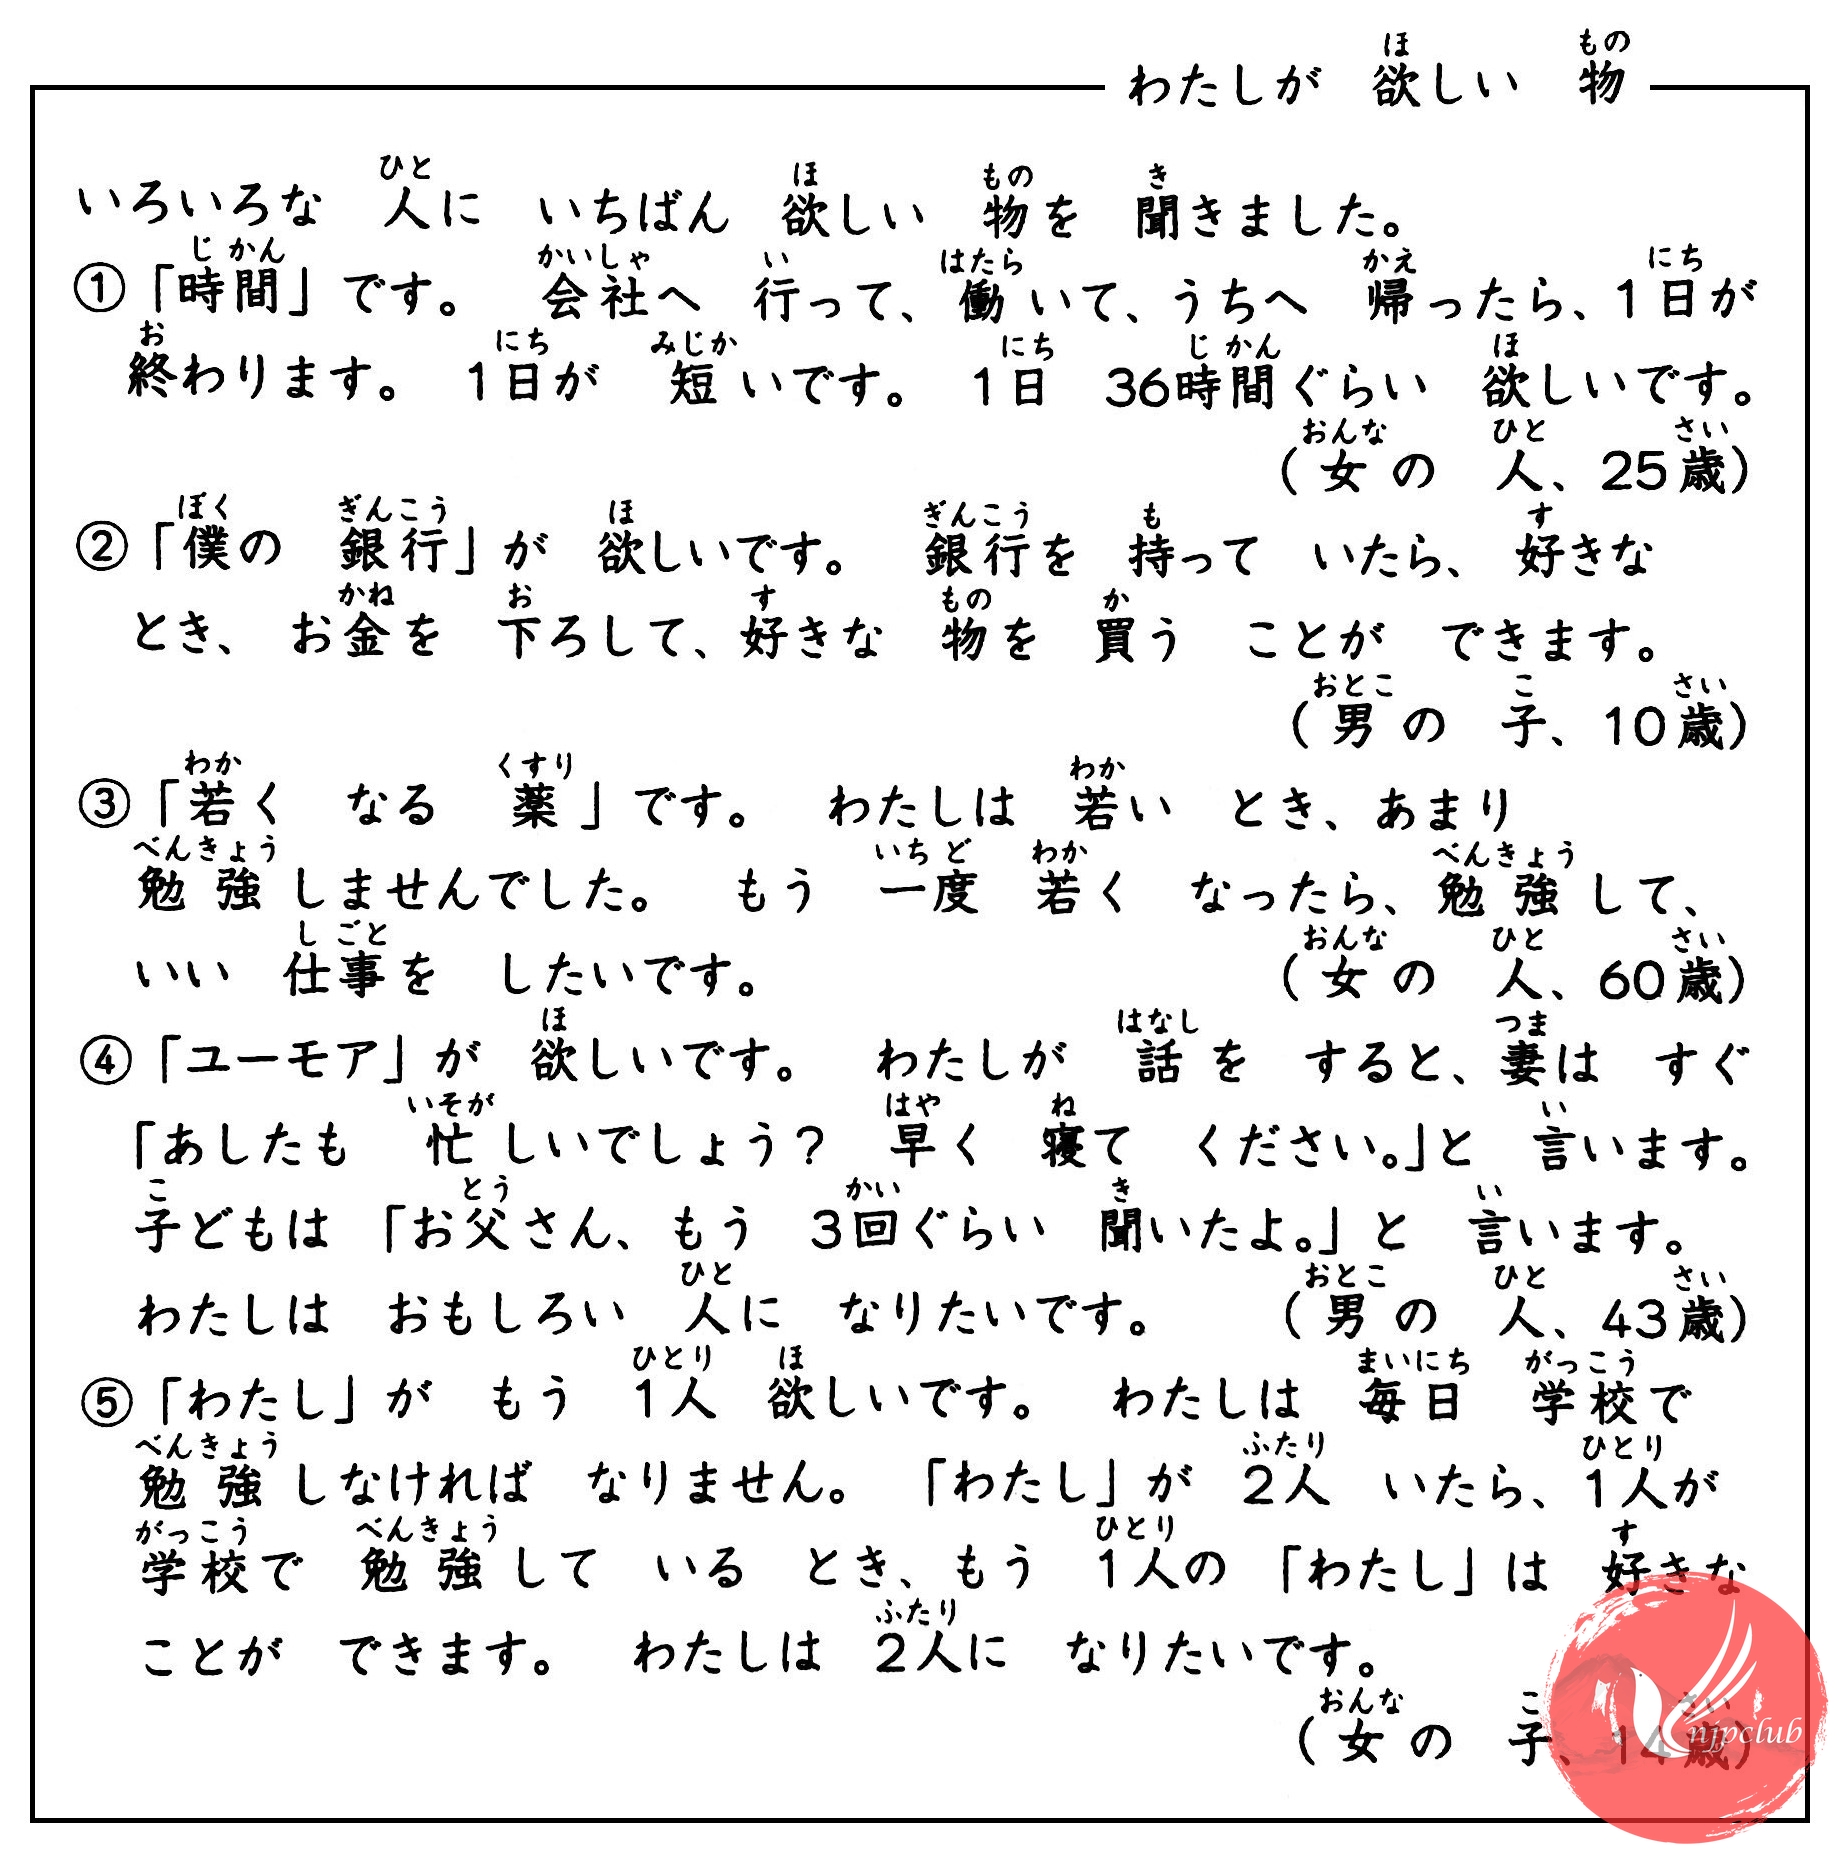 わたしが 欲しい 物
いろいろな 人に いちばん 欲しい 物を 聞きました。
①「時間」です。 会社へ 行って、働いて、うちへ 帰ったら、1日が
終わります。 1日が 短いです。 1日 36時間ぐらい 欲しいです。
（女の 人、25歳）
②「僕の 銀行」が 欲しいです。 銀行を 持って いたら、好きな
とき、お金を 下ろして、好きな 物を 買う ことが できます。
（男の 子、10歳）
③「若く なる 薬」です。 わたしは 若い とき、あまり
勉強しませんでした。 もう 一度 若く なったら、勉強して、
いい 仕事を したいです。 （女の 人、60歳）
④「ユーモア」が 欲しいです。 わたしが 話を すると、妻は すぐ
「あしたも 忙しいでしょう？ 早く 寝て ください。」と 言います。
子どもは 「お父さん、もう 3回ぐらい 聞いたよ。」と 言います。
わたしは おもしろい 人に なりたいです。 （男の 人、43歳）
⑤「わたし」が もう 1人 欲しいです。 わたしは 毎日 学校で
勉強しなければ なりません。 「わたし」が 2人 いたら、1人が
学校で 勉強して いる とき、もう 1人の 「わたし」は 好きな
ことが できます。 わたしは 2人に なりたいです。
（女の 子、14歳）
njpclub